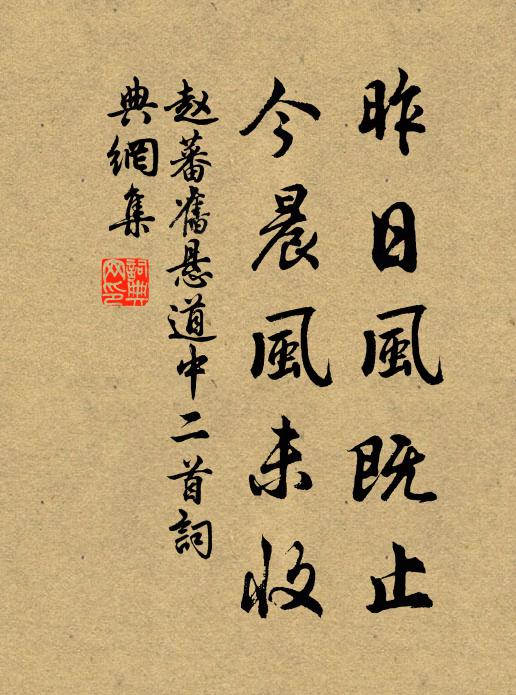 昨日風既止
今晨風未收
趙蕃舊懸道中二首詞
典網集
詞典網印